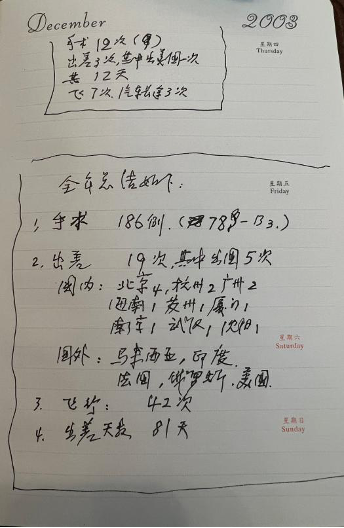 December 2003
星期四
Thursday
手术 12次
出差3次,其中出美国一次
共 12天
飞7次.汽车长途3次
星期五
Friday
全年总结如下:
1, 手术 186例.
2. 出差 19次,其中出国5次
国内: 北京4,杭州2 广州2
海南1 苏州1 厦门1
南京1 武汉1 沈阳1
星期六
Saturday
国外: 马来西亚,印度
法国,俄罗斯.美国
3. 飞行: 42次
4. 出差天数 81天
星期日
Sunday